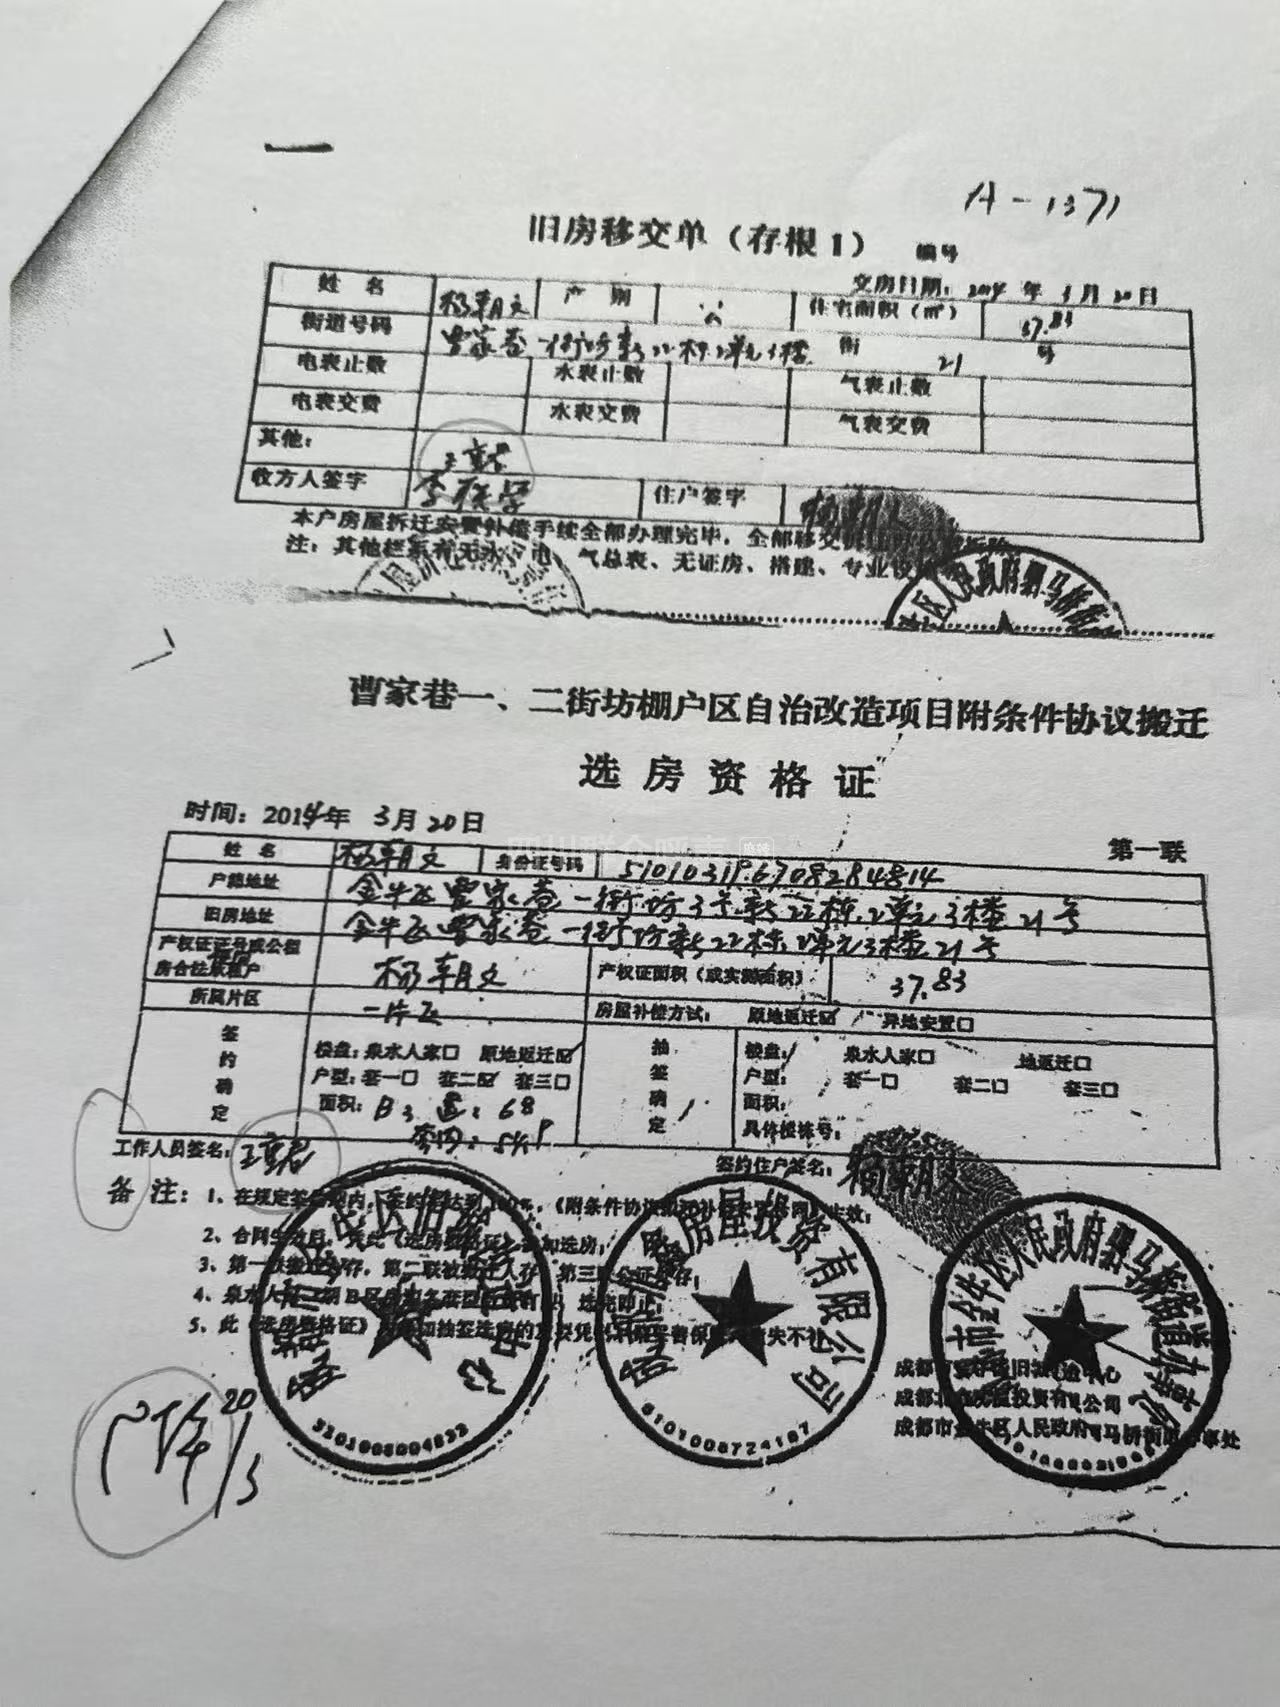 一
A-1371
旧房移交单（存根1） 编号
交房日期：2014年3月20日
姓 名 杨朝文 产 别 公 住宅面积（㎡） 37.83
街道号码 曹家巷一街坊新22栋2单元3楼 街 21 号
电表止数 水表止数 气表止数
电表交费 水表交费 气表交费
其他：
收方人签字 住户签字 杨朝文
本户房屋拆迁安置补偿手续全部办理完毕，全部移交
注：其他栏系有无水、电、气总表、无证房、搭建、专业设
区人民政府驷马桥街
曹家巷一、二街坊棚户区自治改造项目附条件协议搬迁
选房资格证
时间：2014年3月20日
第一联
姓 名 杨朝文 身份证号码 510103196708284814
户籍地址 金牛区曹家巷一街坊3号新22栋2单元3楼21号
旧房地址 金牛区曹家巷一街坊新22栋2单元3楼21号
产权证证号或公租房合位承租户 杨朝文 产权证面积（或实测面积） 37.83
所属片区 一片区 房屋补偿方式： 原地返迁☑ 异地安置☐
签约确定 楼盘：泉水人家☐ 原地返迁☑ 抽签确定 楼盘： 泉水人家☐ 地返迁☐
户型：套一☐ 套二☑ 套三☐ 户型： 套一☐ 套二☐ 套三☐
面积：B3 68 面积：
套内：54.9 具体楼栋号：
工作人员签名： 签约住户签名：杨朝文
备 注：1、在规定签约期内，签约率达到100%，《附条件协议搬迁补偿安置合同》生效；
2、合同生效后，凭此《选房资格证》参加选房；
3、第一联搬迁人存，第二联被搬迁人存，第三联公证处存；
4、泉水人家
5、此《选房资格证》
房屋投资有限公司
5101008724187
市金牛区人民政府驷马桥街道办事处
成都
成都北 投资有限公司
成都市金牛区人民政府驷马桥街道办事处
20/3